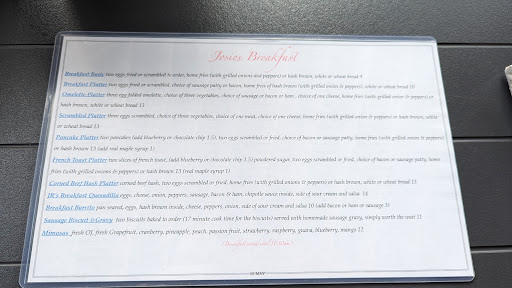 Josies Breakfast
Breakfast Basic two eggs fried or scrambled to order, home fries (with grilled onions and peppers) or hash brown, white or wheat bread 9
Breakfast Platter two eggs fried or scrambled, choice of sausage patty or bacon, home fries (with grilled onions & peppers) or hash brown, white or wheat bread 10
Omelette Platter three egg folded omelette, choice of three vegetables, choice of sausage or bacon or ham, choice of one cheese, home fries (with grilled onions & peppers) or
hash brown, white or wheat bread 13
Scrambled Platter three eggs scrambled, choice of three vegetables, choice of one meat, choice of one cheese, home fries (with grilled onions & peppers) or hash brown, white
or wheat bread 13
Pancake Platter two pancakes (add blueberry or chocolate chip 1.5), two eggs scrambled or fried, choice of bacon or sausage patty, home fries (with grilled onions & peppers)
or hash brown 13 (add real maple syrup 1)
French Toast Platter two slices of french toast, (add blueberry or chocolate chip 1.5) powdered sugar, two eggs scrambled or fried, choice of bacon or sausage patty, home
fries (with grilled onions & peppers) or hash brown 13 (real maple syrup 1)
Corned Beef Hash Platter corned beef hash, two eggs scrambled or fried, home fries (with grilled onions & peppers) or hash brown, white or wheat bread 13
JR's Breakfast Quesadilla eggs, cheese, onions, peppers, sausage, bacon & ham, chipotle sauce inside, side of sour cream and salsa 14
Breakfast Burrito pan seared, eggs, hash brown inside, cheese, peppers, onion, side of sour cream and salsa 10 (add bacon or ham or sausage 3)
Sausage Biscuit &Gravy two biscuits baked to order (17 minute cook time for the biscuits) served with homemade sausage gravy, simply worth the wait 11
Mimosas fresh OJ, fresh Grapefruit, cranberry, pineapple, peach, passion fruit, strawberry, raspberry, guava, blueberry, mango 12